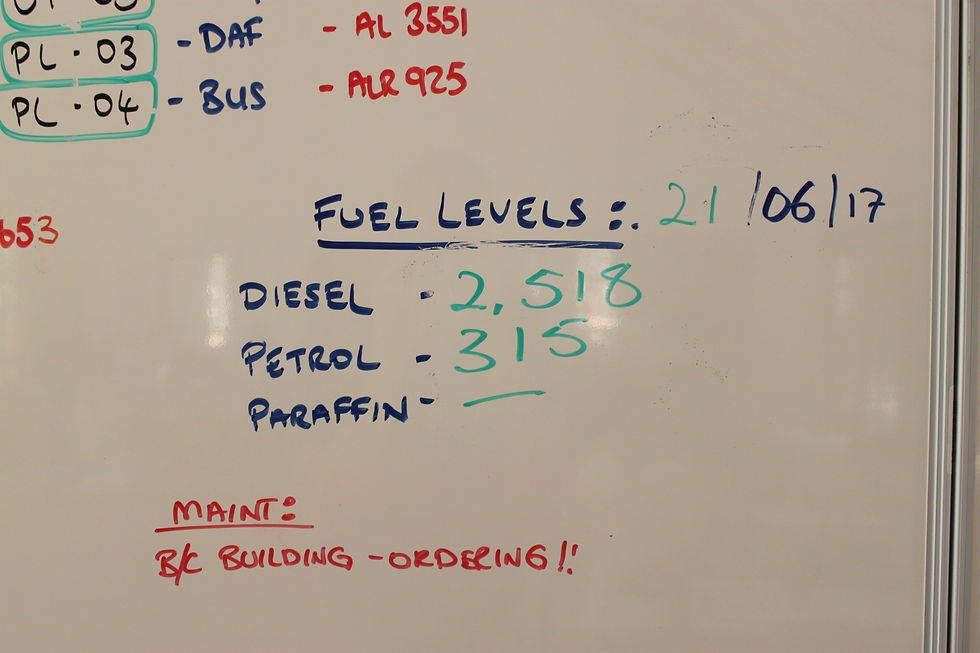 PL · 03 - DAF - AL 3551
PL · 04 - BUS - ALR 925
653
FUEL LEVELS :. 21/06/17
DIESEL - 2,518
PETROL - 315
PARAFFIN - —
MAINT:
B/C BUILDING - ORDERING!!